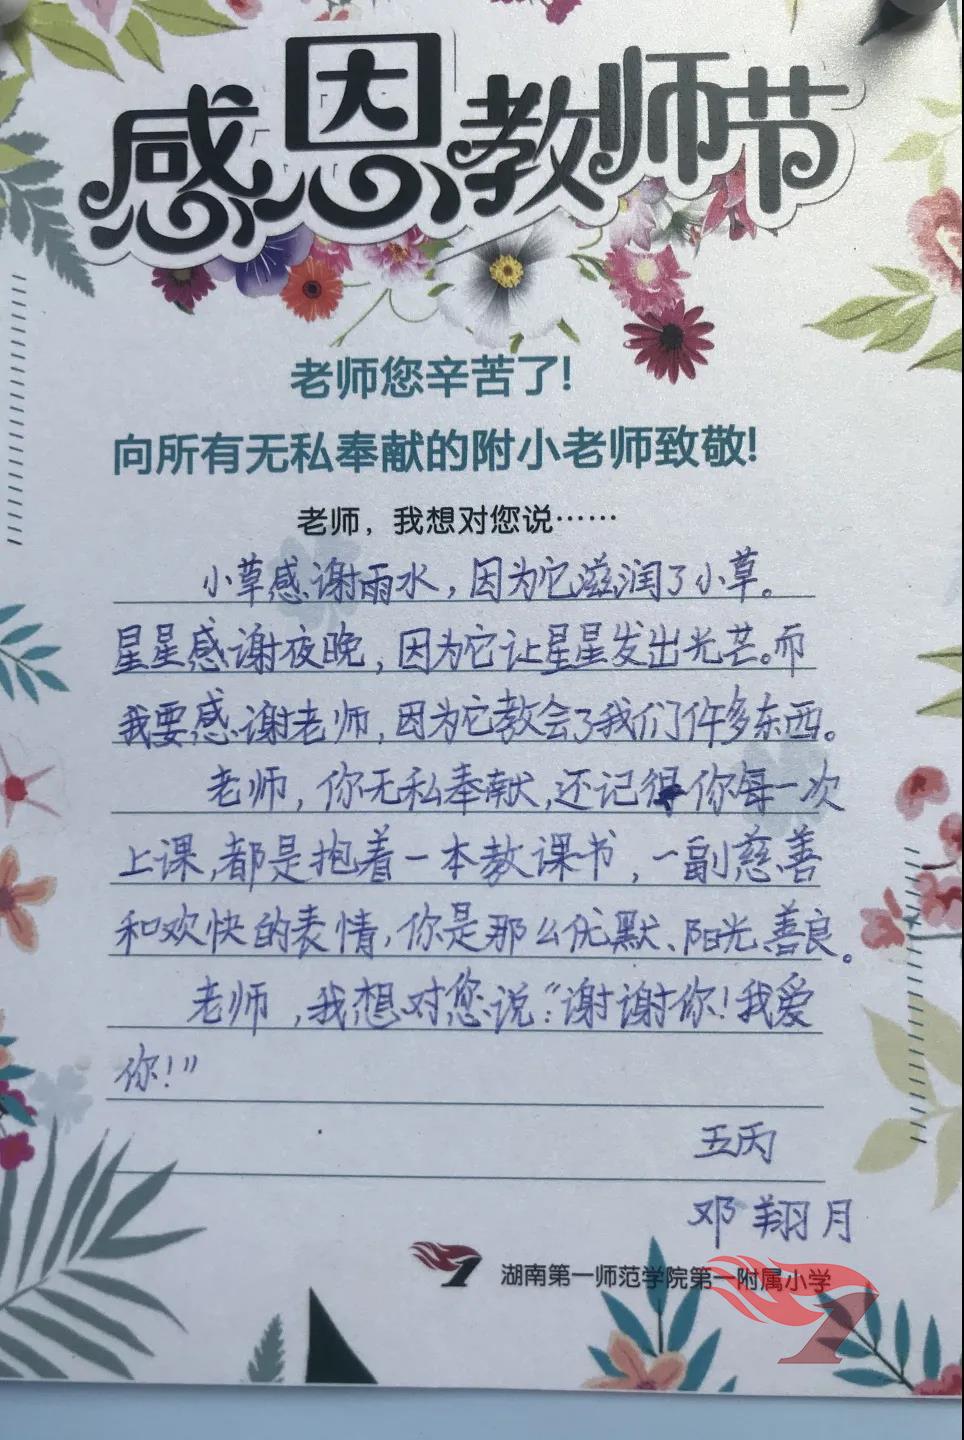 感恩教师节
老师您辛苦了!
向所有无私奉献的附小老师致敬!
老师，我想对您说……
小草感谢雨水，因为它滋润了小草。
星星感谢夜晚，因为它让星星发出光芒。而
我要感谢老师，因为它教会了我们许多东西。
老师，你无私奉献，还记得你每一次
上课，都是抱着一本教课书，一副慈善
和欢快的表情，你是那么优默、阳光、善良。
老师，我想对您说：“谢谢你！我爱
你！”
五丙
邓翔月
湖南第一师范学院第一附属小学